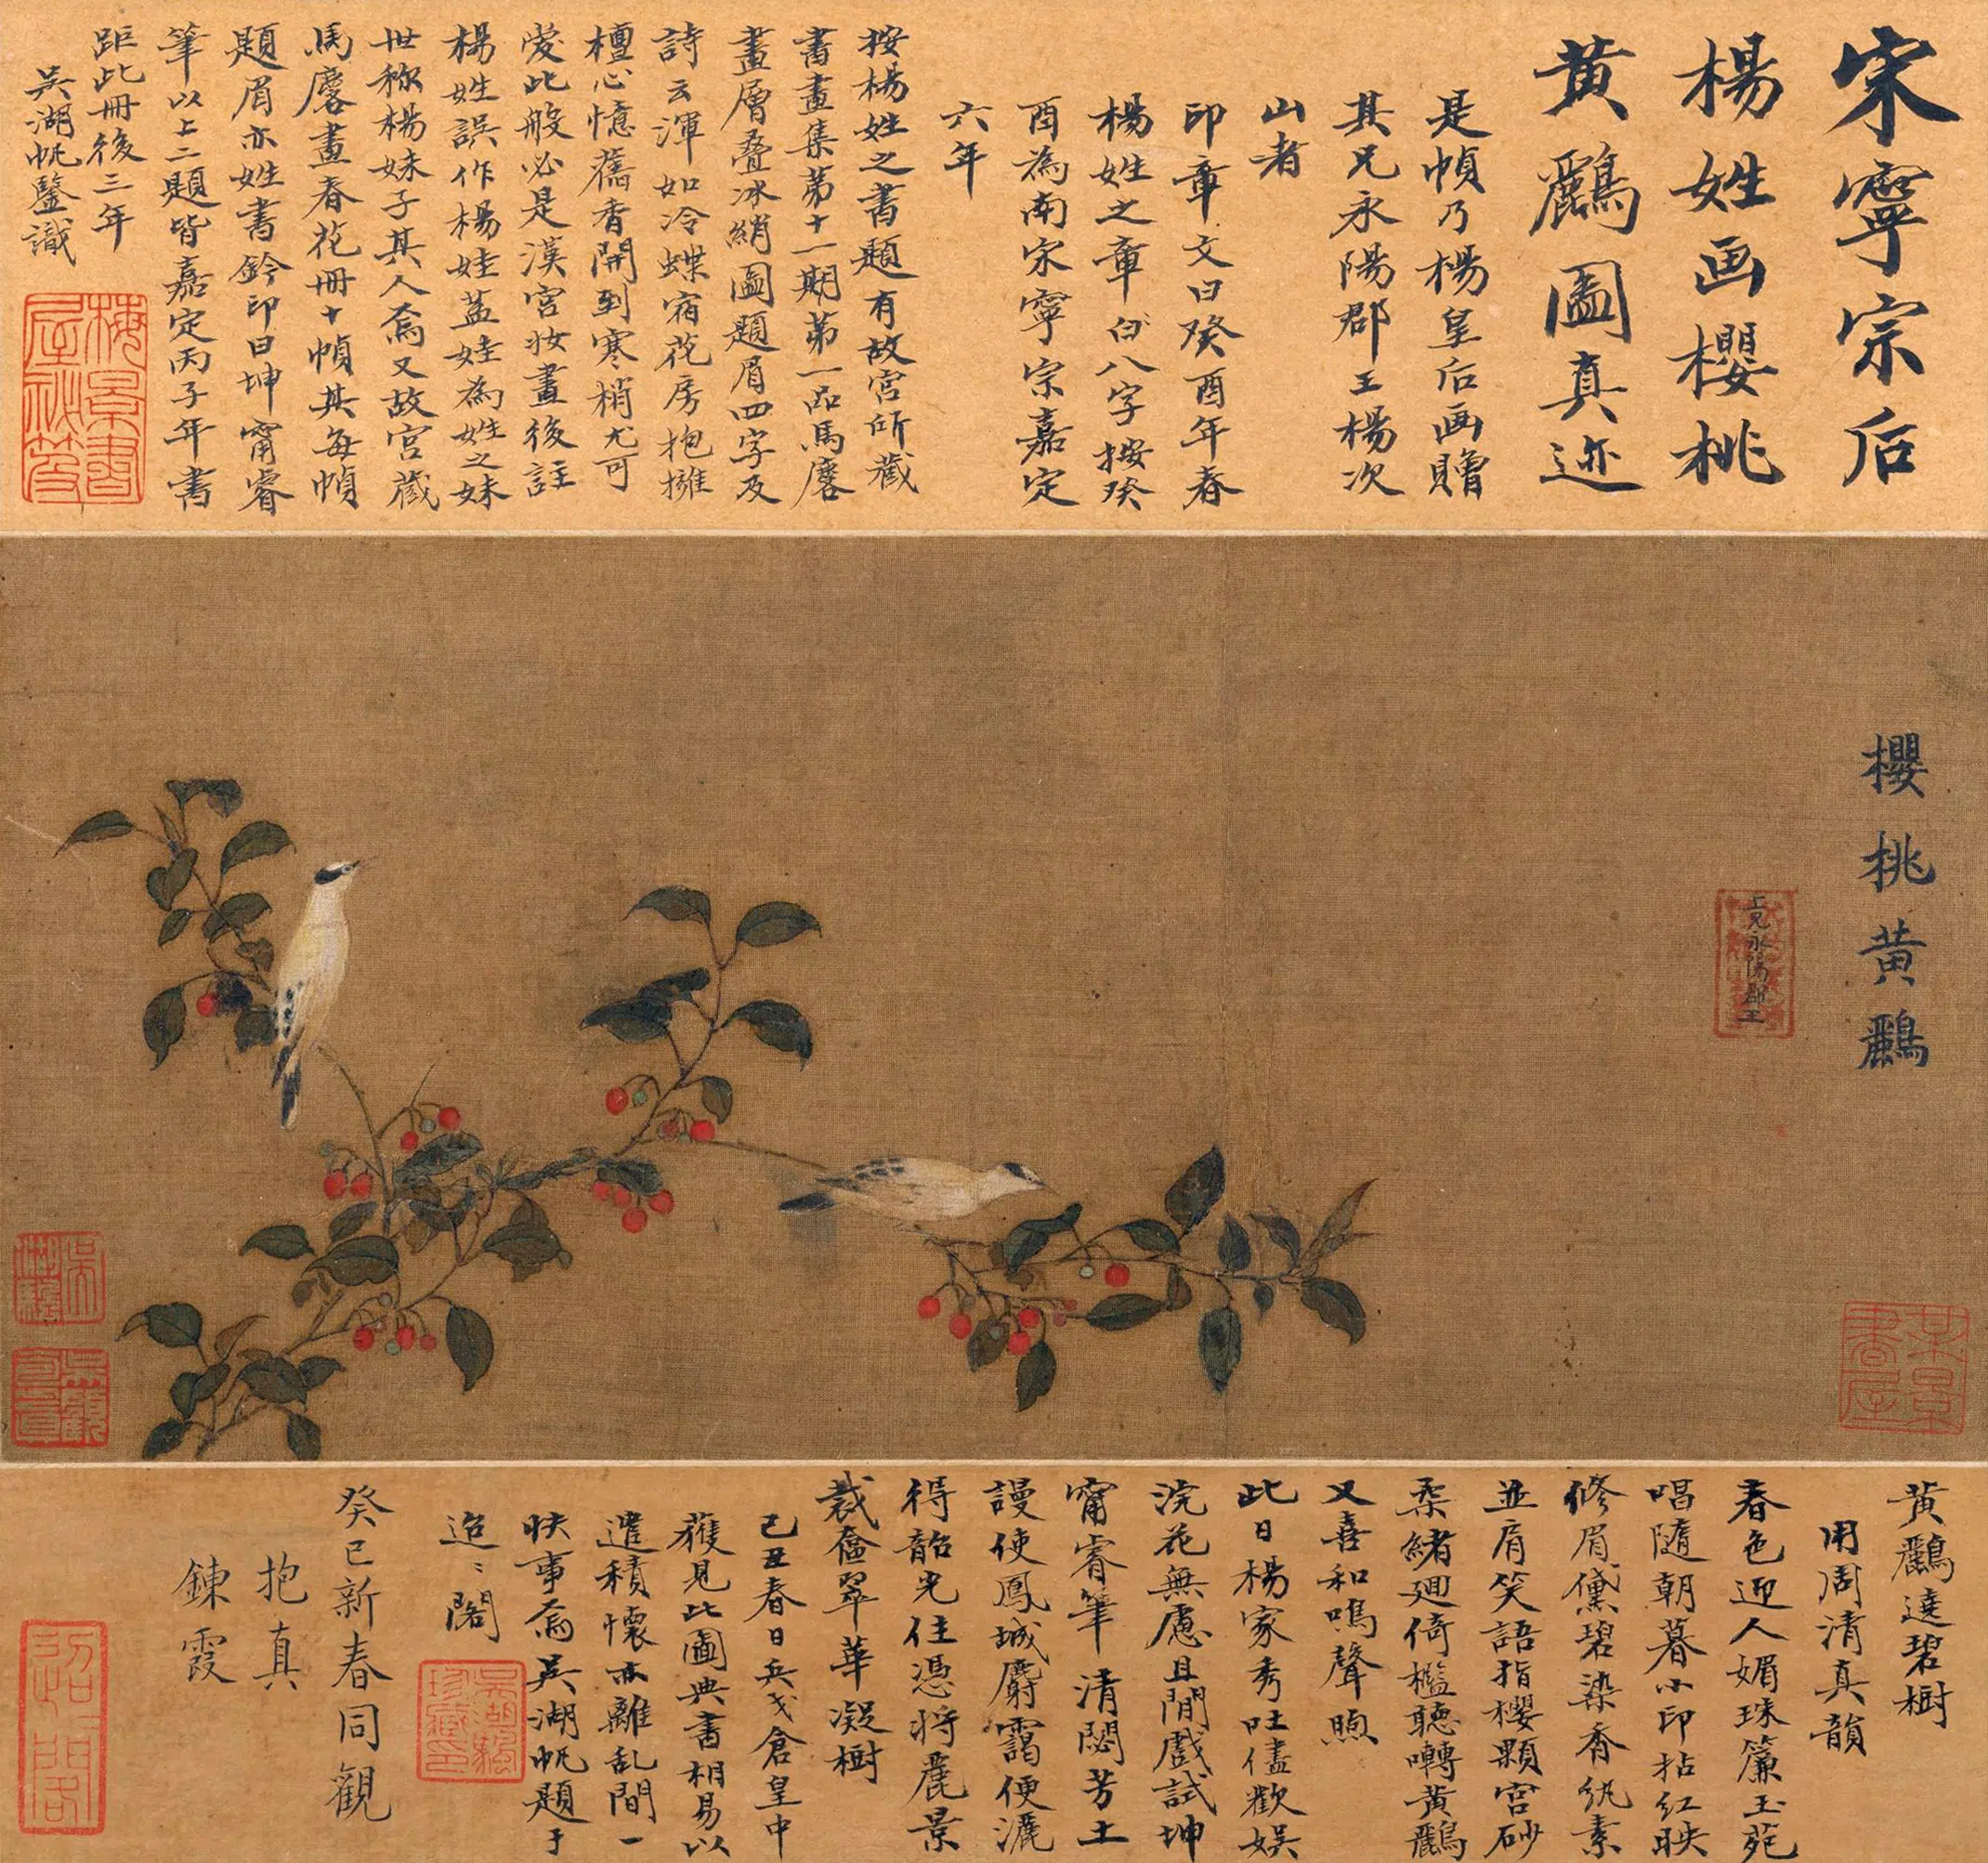 宋寧宗后
楊姓画櫻桃
黃鸝圖真迹
是幀乃楊皇后画贈
其兄永陽郡王楊次
山者
印章文曰癸酉年春
楊姓之章白八字按癸
酉為南宋寧宗嘉定
六年
按楊姓之書題有故宮所藏
書畫集第十一期第一品馬麐
畫層叠冰綃圖題眉四字及
詩云渾如冷蝶宿花房抱擁
檀心憶舊香開到寒梢尤可
愛此般必是漢宮妝畫後註
楊姓誤作楊娃蓋娃為姓之妹
世称楊妹子其人焉又故宮藏
馬麐畫春花冊十幀其每幀
題眉亦姓書鈐印曰坤甯睿
筆以上二題皆嘉定丙子年書
距此冊後三年
吳湖帆鑒識
梅景書
屋祕笈
櫻桃黃鸝
上兄永陽郡王
梅景
書屋
黃鸝遶碧樹
用周清真韻
春色迎人媚珠簾玉苑
唱隨朝暮小印拈紅映
修眉黛碧染香紈素
並肩笑語指櫻顆宮砂
柔緒廻倚檻聽囀黃鸝
又喜和鳴聲煦
此日楊家秀吐儘歡娱
浣花無慮且閒戲試坤
甯睿筆清閟芳土
謾使鳳城麝靄便灑
得韶光住憑將麗景
裁奩翠華凝樹
己丑春日兵戈倉皇中
獲見此圖典書相易以
遣積懷亦離乱間一
快事焉吳湖帆題于
迢迢閣
吳湖颿
珍藏印
癸巳新春同觀
抱真
鍊霞
迢迢閣